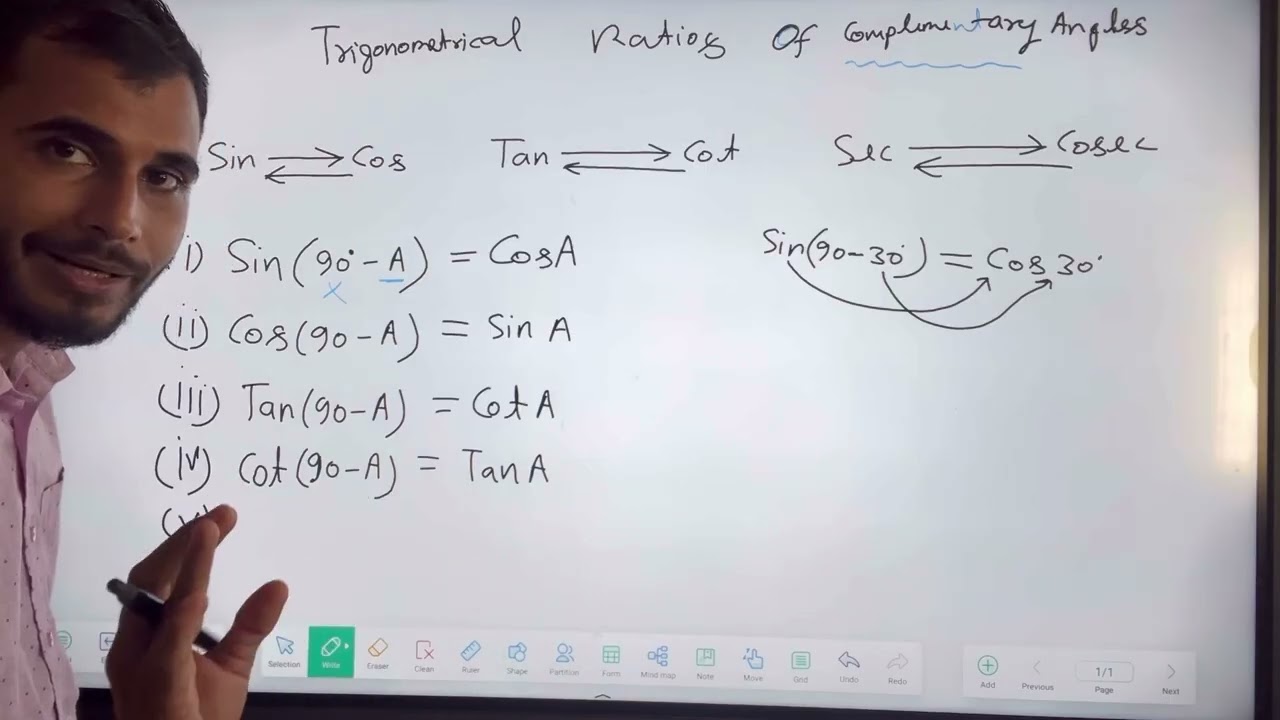 Trigonometrical Ratios Of Complimentary Angles
Sin ⇄ Cos Tan ⇄ Cot Sec ⇄ Cosec
i) Sin(90° - A) = CosA
Sin(90-30°) = Cos 30°
(ii) Cos(90-A) = Sin A
(iii) Tan(90-A) = Cot A
(iv) Cot(90-A) = Tan A
(v)
Selection Write Eraser Clean Ruler Shape Partition Form Mind map Note Move Grid Undo Redo Add Previous 1/1 Page Next